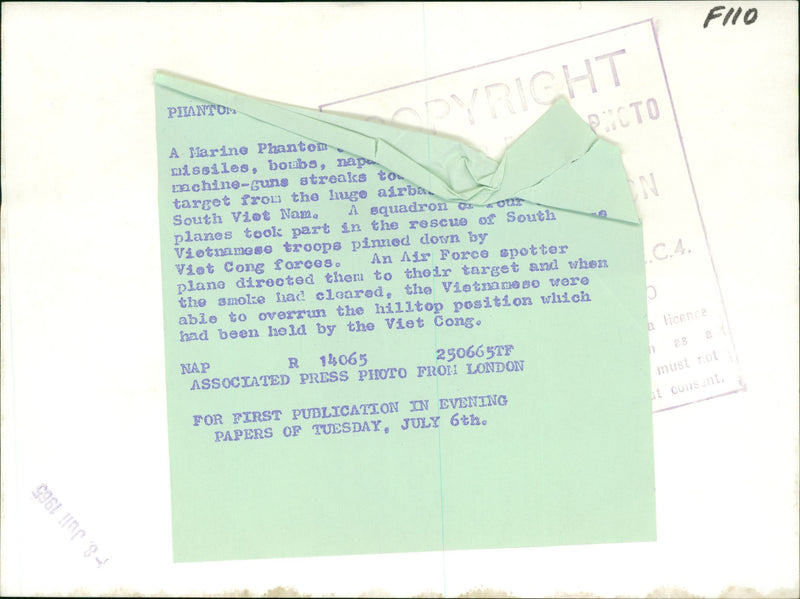 F110
COPYRIGHT
PHOTO
C.4.
licence
as a
must not
consent.
PHANTOM
A Marine Phantom
missiles, bombs,
machine-guns streaks
target from the huge
South Viet Nam. A squadron of four
planes took part in the rescue of South
Vietnamese troops pinned down by
Viet Cong forces. An Air Force spotter
plane directed them to their target and when
the smoke had cleared, the Vietnamese were
able to overrun the hilltop position which
had been held by the Viet Cong.
NAP R 14065 250665TF
ASSOCIATED PRESS PHOTO FROM LONDON
FOR FIRST PUBLICATION IN EVENING
PAPERS OF TUESDAY, JULY 6th.
-8. Juli 1965